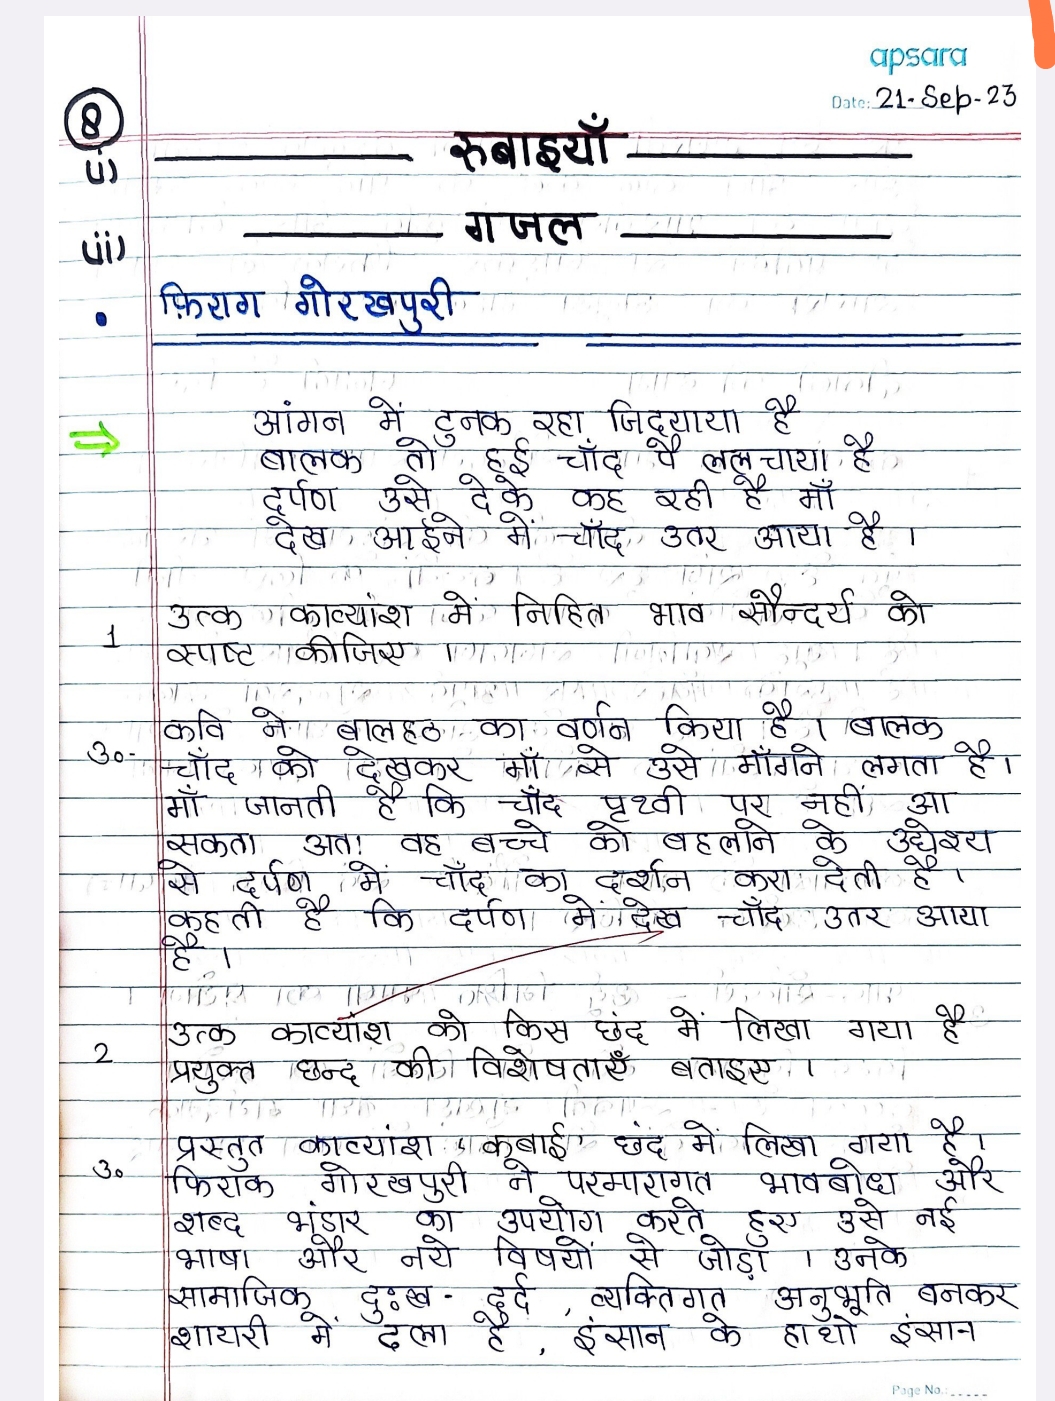 apsara
Date: 21-Sep-23
8
ii) रुबाइयाँ
iii) गजल
फ़िराग गोरखपुरी
आंगन में ठुनक रहा जिदयाया है
बालक तो हई चाँद पै ललचाया है
दर्पण उसे देके कह रही है माँ
देख आईने में चाँद उतर आया है ।
1 उत्क काव्यांश में निहित भाव सौन्दर्य को
स्पष्ट कीजिए ।
उ०- कवि ने बालहठ का वर्णन किया है । बालक
चाँद को देखकर माँ से उसे माँगने लगता है।
माँ जानती है कि चाँद पृथ्वी पर नहीं आ
सकता अतः वह बच्चे को बहलाने के उद्येश्य
से दर्पण में चाँद का दर्शन करा देती है ।
कहती है कि दर्पण में देख चाँद उतर आया
है ।
2 उत्क काव्यांश को किस छंद में लिखा गया है
प्रयुक्त छन्द की विशेषताएँ बताइए ।
उ० प्रस्तुत काव्यांश 'रुबाई' छंद में लिखा गया है।
फिराक गोरखपुरी ने परमारागत भावबोध और
शब्द भंडार का उपयोग करते हुए उसे नई
भाषा और नये विषयों से जोड़ा । उनके
सामाजिक दुःख - दर्द , व्यक्तिगत अनुभूति बनकर
शायरी में ढला है , इंसान के हाथो इंसान
Page No.: